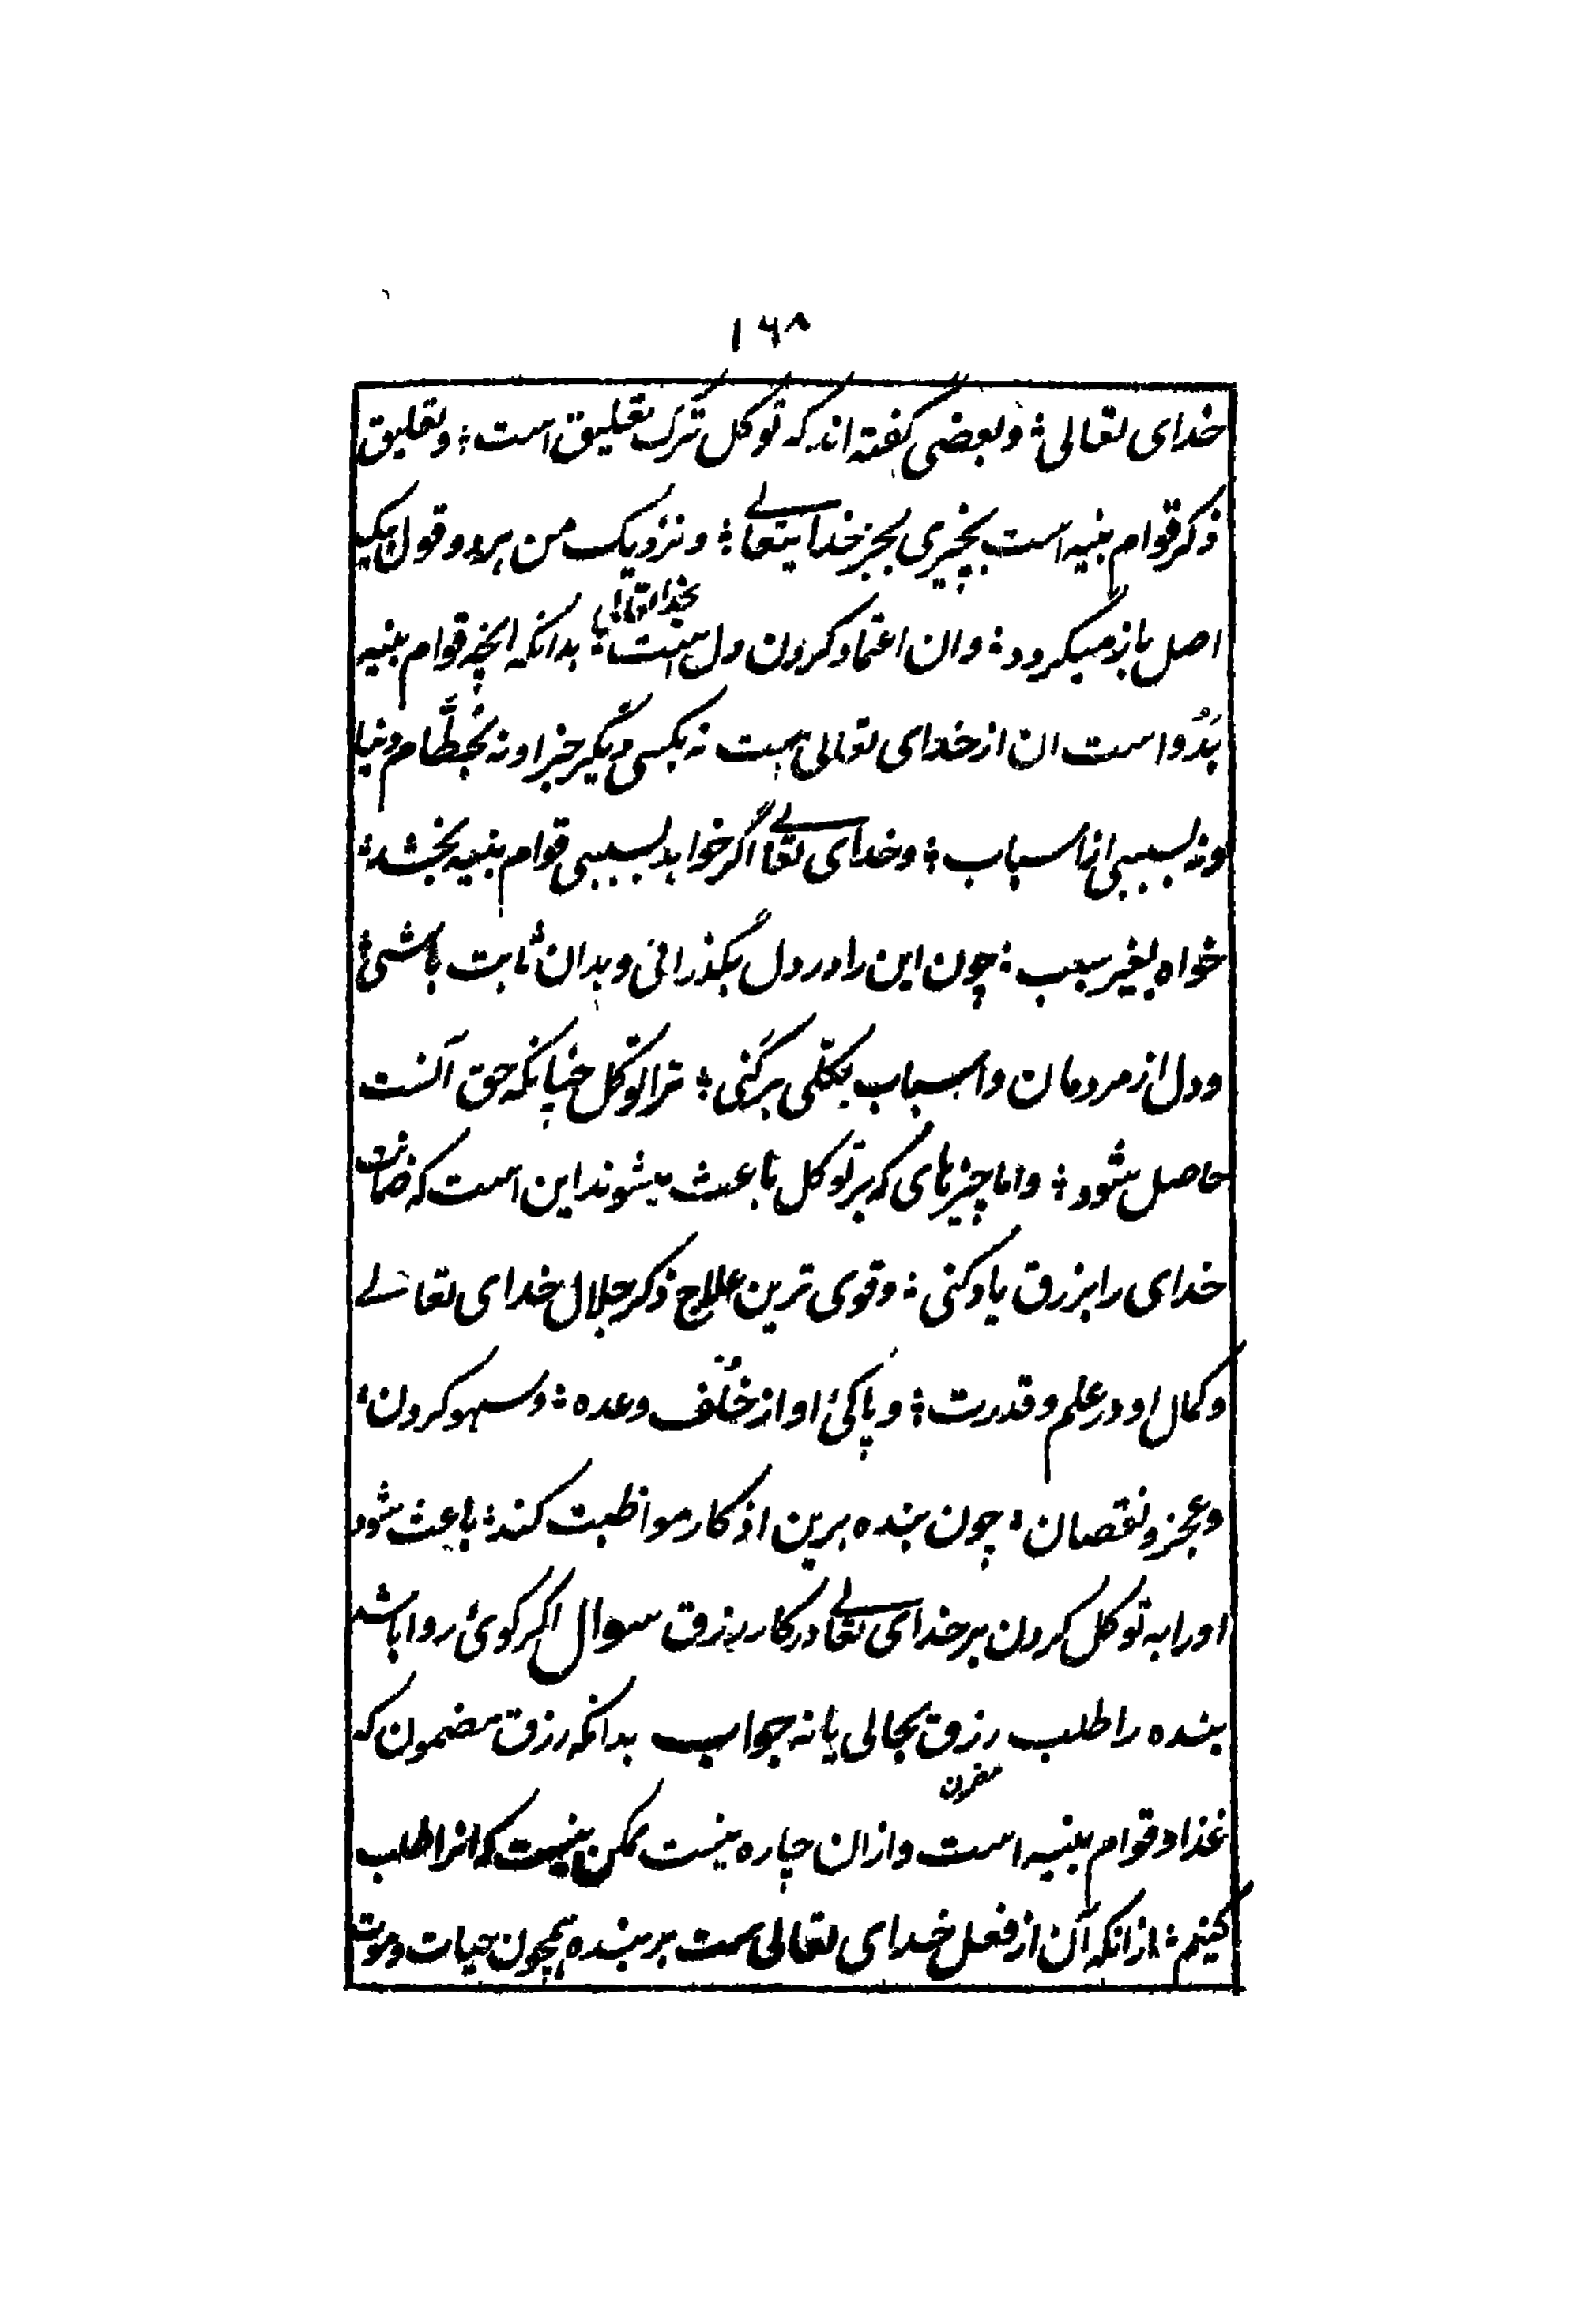 ۱۶۸
خدای تعالی ؛ و بعضی گفته اند که توکل ترک تعلیق است ؛ و تعلیق
ذکر قوام بنیه است بچیزی بجز خدایتعالے ؛ و نزدیک من هر دو قول بیک
اصل باز میگردد ؛ و ان اعتماد کردن دل است بخدایتعالی ؛ بدانکه انچه قوام بنیه
بَدُو است ان از خدای تعالی ست نه بکسی دیگر جز او نه بحُطَّام دنیا
و نه بسببی از اسباب ؛ و خدای تعالے اگر خواهد بسببی قوام بنیه بخشد ؛
خواه بغیر سبب ؛ چون این را در دل بگذرانی و بدان ثابت باشئ ؛
و دل از مردمان و اسباب بکلّی برکَنی ؛ ترا توکل چنانکه حق آنست
حاصل شود ؛ و اما چیزهای که بر توکل باعث میشوند این است که ضمانت
خدای را برزق یاد کنی ؛ و قوی ترین علاج ذکر جلال خدای تعالے
و کمال او در علم و قدرت ؛ و پاکئ او از خُلف وعده ؛ و سهو کردن ؛
و عجز و نقصان ؛ چون بنده برین اذکار مواظبت کند ؛ باعث شود
او را به توکل کردن بر خدای تعالے در کار رزق سوال اگر گوئ روا باشد
بنده را طلب رزق بحالی یا نه جواب بدانکه رزق مضمون که
غذا و قوام بنیه است و ازان چاره نیست ممکن نیست که انرا طلب
کنیم ؛ ازانکه آن از فعل خدای تعالی ست بر بنده همچون حیات و موت